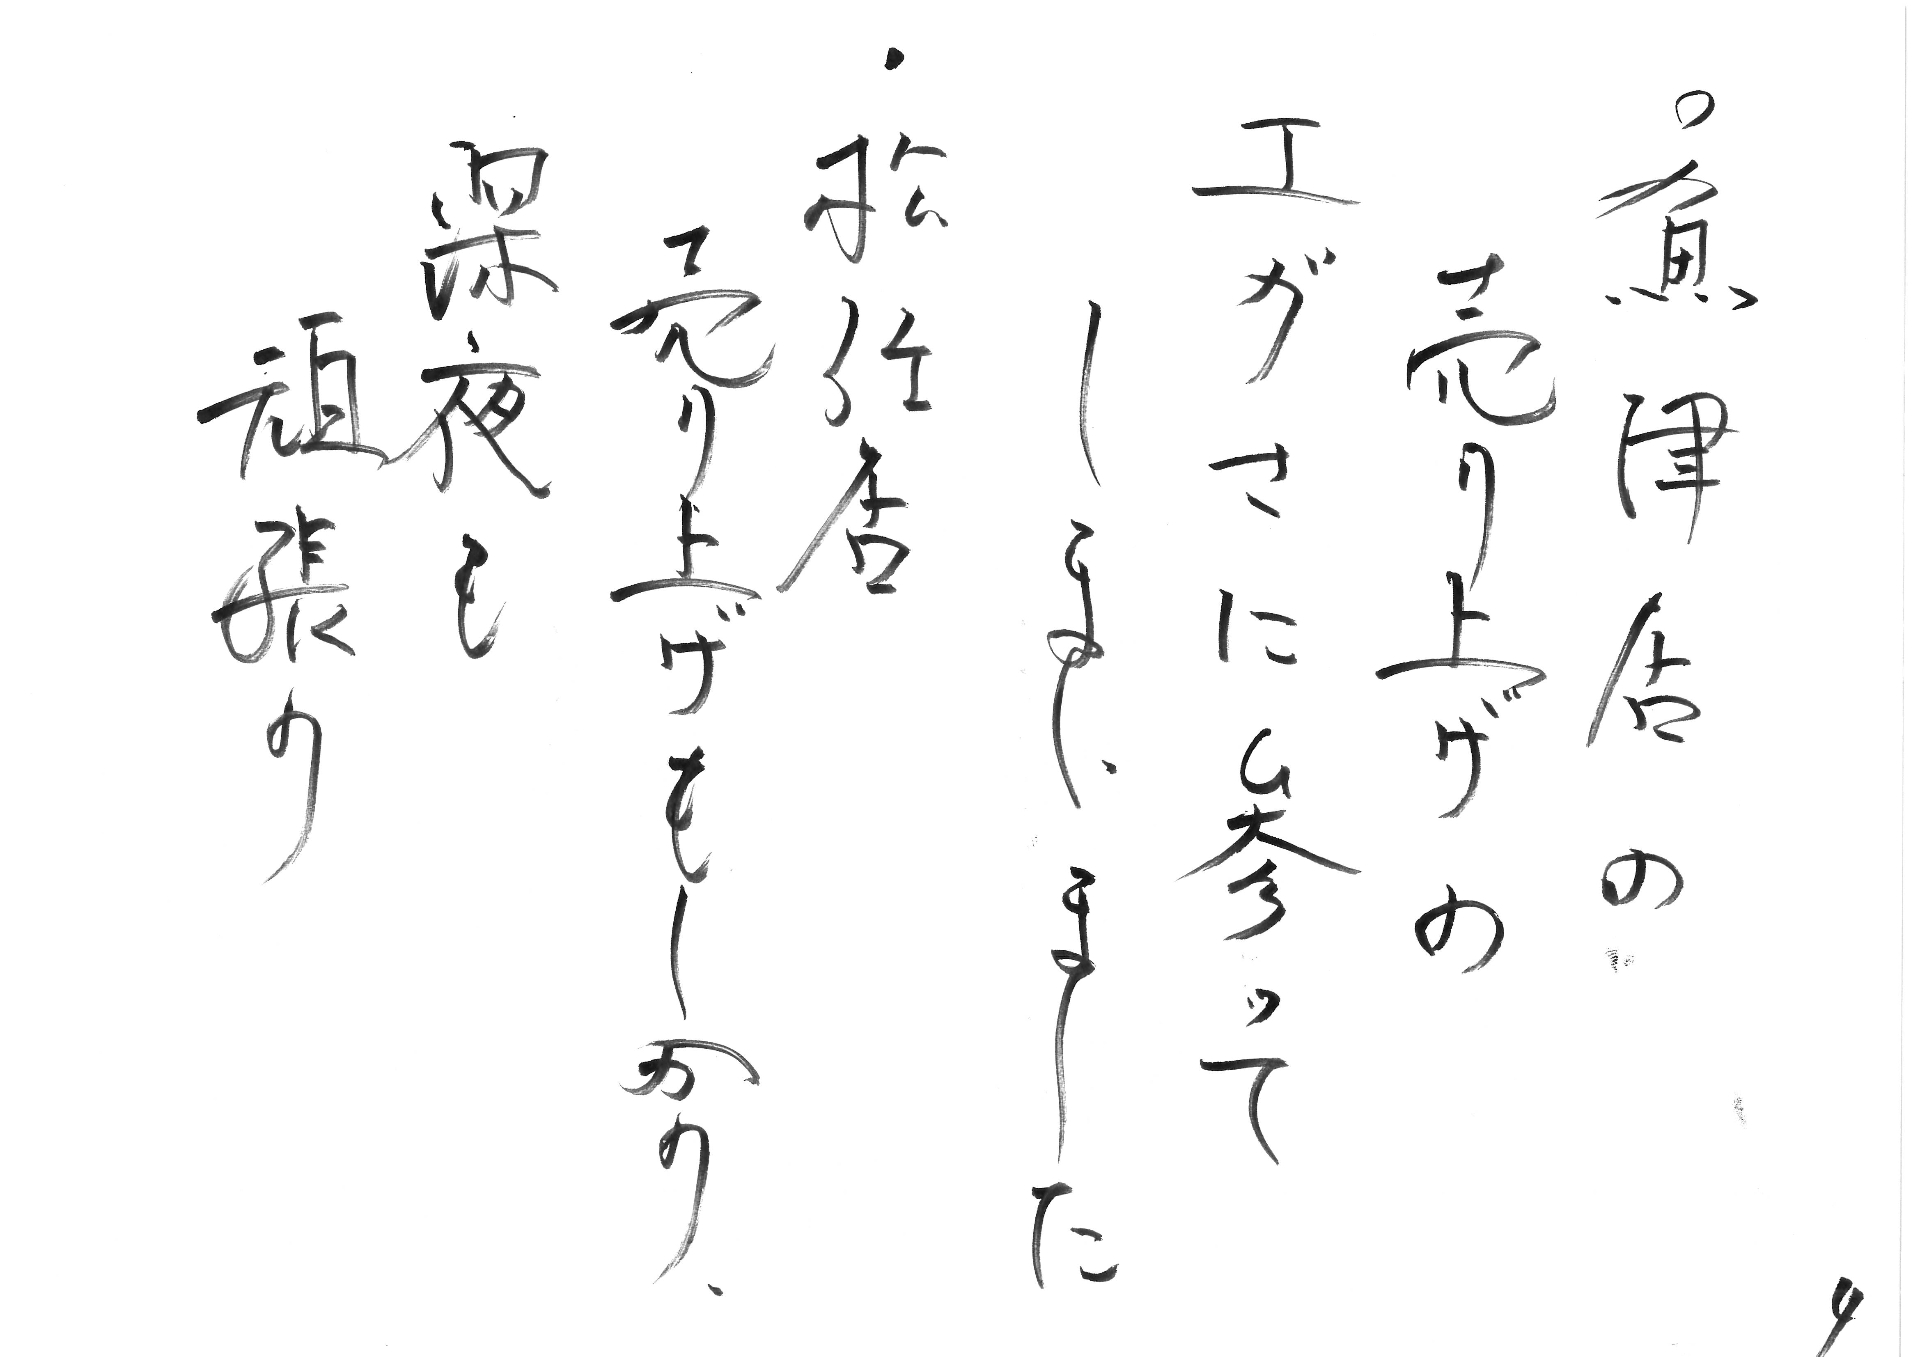 。魚津店の
売り上げの
エグさに参って
しまいました
・松任店
売り上げもしかり、
深夜も
頑張り
4